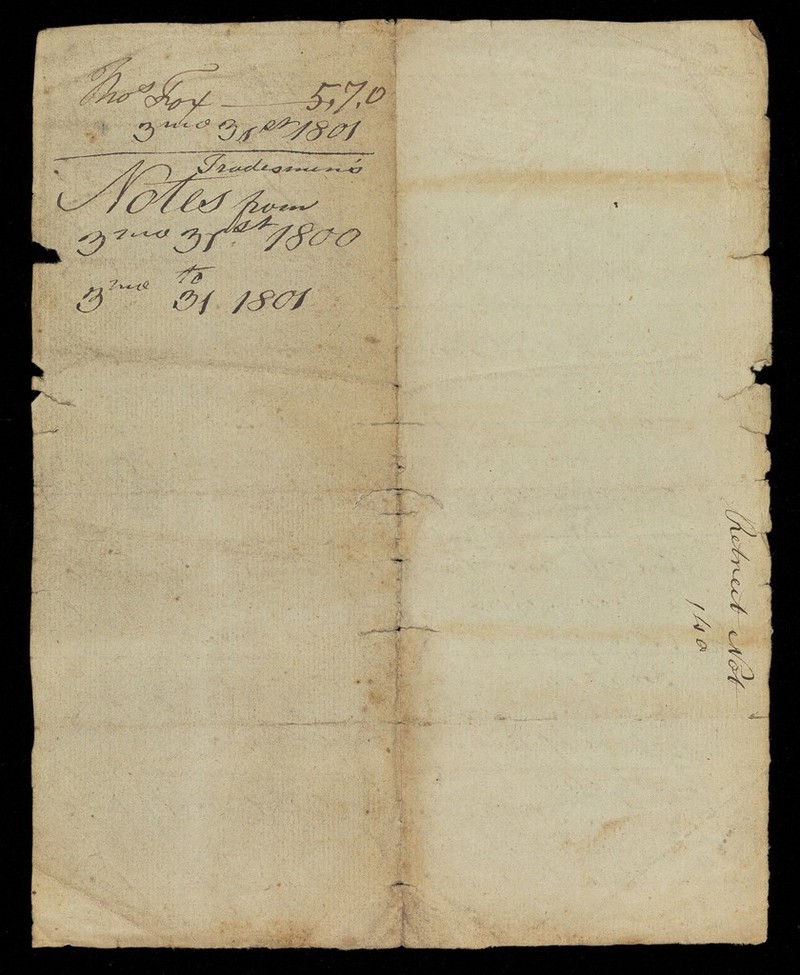 Thos Fox — 5,7,0
3mo 31st 1801
Tradesmen's
Notes from
3mo 31st 1800
to
3mo 31 1801
Retreat Not